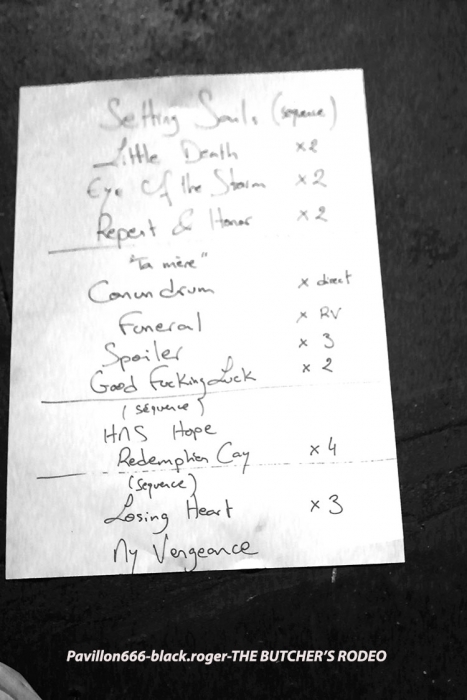 Setting Souls (sequence)
Little Death x2
Eye Of the Storm x2
Repent & Honor x2
"Ta mère"
Conundrum x direct
Funeral x RV
Spoiler x 3
Good Fucking Luck x 2
(séquence)
HMS Hope
Redemption Cay x 4
(sequence)
Losing Heart x 3
My Vengeance
Pavillon666-black.roger-THE BUTCHER'S RODEO